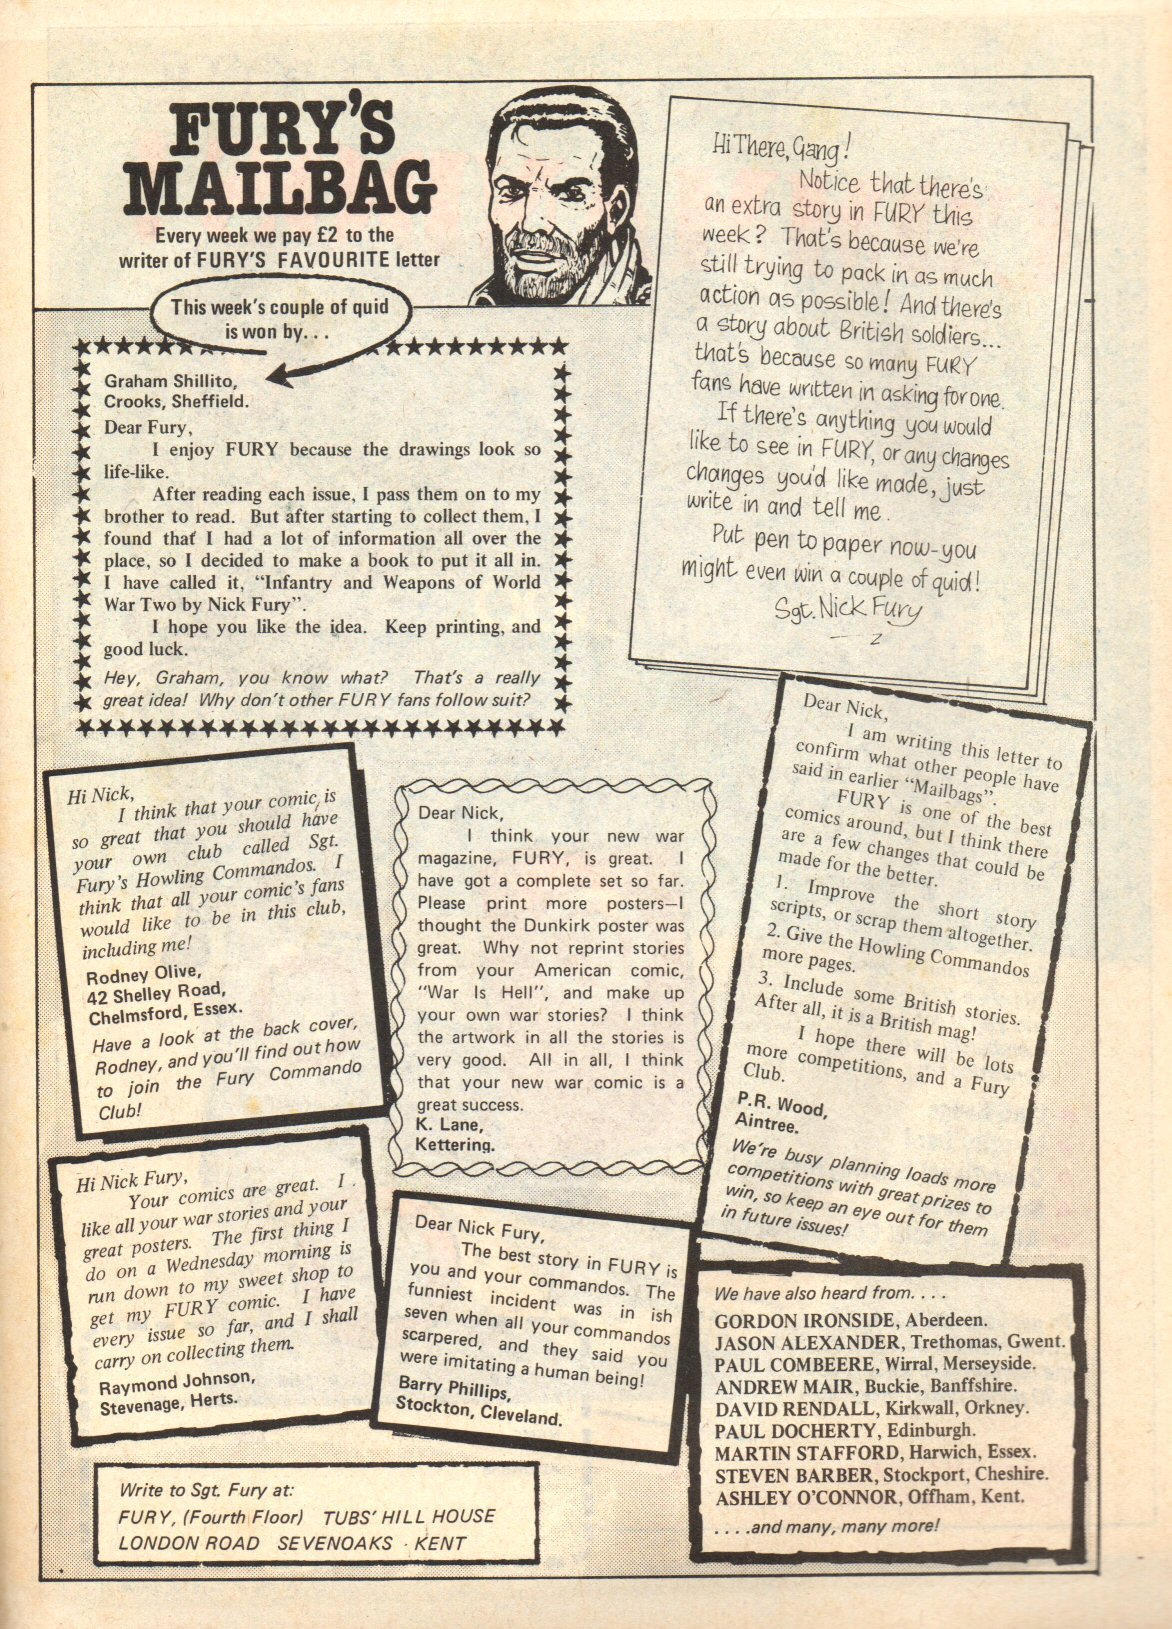 FURY'S
MAILBAG
Every week we pay £2 to the
writer of FURY'S FAVOURITE letter
This week's couple of quid
is won by...
Graham Shillito,
Crooks, Sheffield.
Dear Fury,
I enjoy FURY because the drawings look so
life-like.
After reading each issue, I pass them on to my
brother to read. But after starting to collect them, I
found that I had a lot of information all over the
place, so I decided to make a book to put it all in.
I have called it, “Infantry and Weapons of World
War Two by Nick Fury”.
I hope you like the idea. Keep printing, and
good luck.
Hey, Graham, you know what? That's a really
great idea! Why don't other FURY fans follow suit?
Hi There, Gang!
Notice that there's
an extra story in FURY this
week? That's because we're
still trying to pack in as much
action as possible! And there's
a story about British soldiers...
that's because so many FURY
fans have written in asking for one.
If there's anything you would
like to see in FURY, or any changes
changes you'd like made, just
write in and tell me.
Put pen to paper now-you
might even win a couple of quid!
Sgt. Nick Fury
Hi Nick,
I think that your comic is
so great that you should have
your own club called Sgt.
Fury's Howling Commandos. I
think that all your comic's fans
would like to be in this club,
including me!
Rodney Olive,
42 Shelley Road,
Chelmsford, Essex.
Have a look at the back cover,
Rodney, and you'll find out how
to join the Fury Commando
Club!
Dear Nick,
I think your new war
magazine, FURY, is great. I
have got a complete set so far.
Please print more posters—I
thought the Dunkirk poster was
great. Why not reprint stories
from your American comic,
“War Is Hell”, and make up
your own war stories? I think
the artwork in all the stories is
very good. All in all, I think
that your new war comic is a
great success.
K. Lane,
Kettering.
Dear Nick,
I am writing this letter to
confirm what other people have
said in earlier “Mailbags”.
FURY is one of the best
comics around, but I think there
are a few changes that could be
made for the better.
1. Improve the short story
scripts, or scrap them altogether.
2. Give the Howling Commandos
more pages.
3. Include some British stories.
After all, it is a British mag!
I hope there will be lots
more competitions, and a Fury
Club.
P.R. Wood,
Aintree.
We're busy planning loads more
competitions with great prizes to
win, so keep an eye out for them
in future issues!
Hi Nick Fury,
Your comics are great. I
like all your war stories and your
great posters. The first thing I
do on a Wednesday morning is
run down to my sweet shop to
get my FURY comic. I have
every issue so far, and I shall
carry on collecting them.
Raymond Johnson,
Stevenage, Herts.
Dear Nick Fury,
The best story in FURY is
you and your commandos. The
funniest incident was in ish
seven when all your commandos
scarpered, and they said you
were imitating a human being!
Barry Phillips,
Stockton, Cleveland.
We have also heard from....
GORDON IRONSIDE, Aberdeen.
JASON ALEXANDER, Trethomas, Gwent.
PAUL COMBEERE, Wirral, Merseyside.
ANDREW MAIR, Buckie, Banffshire.
DAVID RENDALL, Kirkwall, Orkney.
PAUL DOCHERTY, Edinburgh.
MARTIN STAFFORD, Harwich, Essex.
STEVEN BARBER, Stockport, Cheshire.
ASHLEY O'CONNOR, Offham, Kent.
....and many, many more!
Write to Sgt. Fury at:
FURY, (Fourth Floor) TUBS' HILL HOUSE
LONDON ROAD SEVENOAKS · KENT